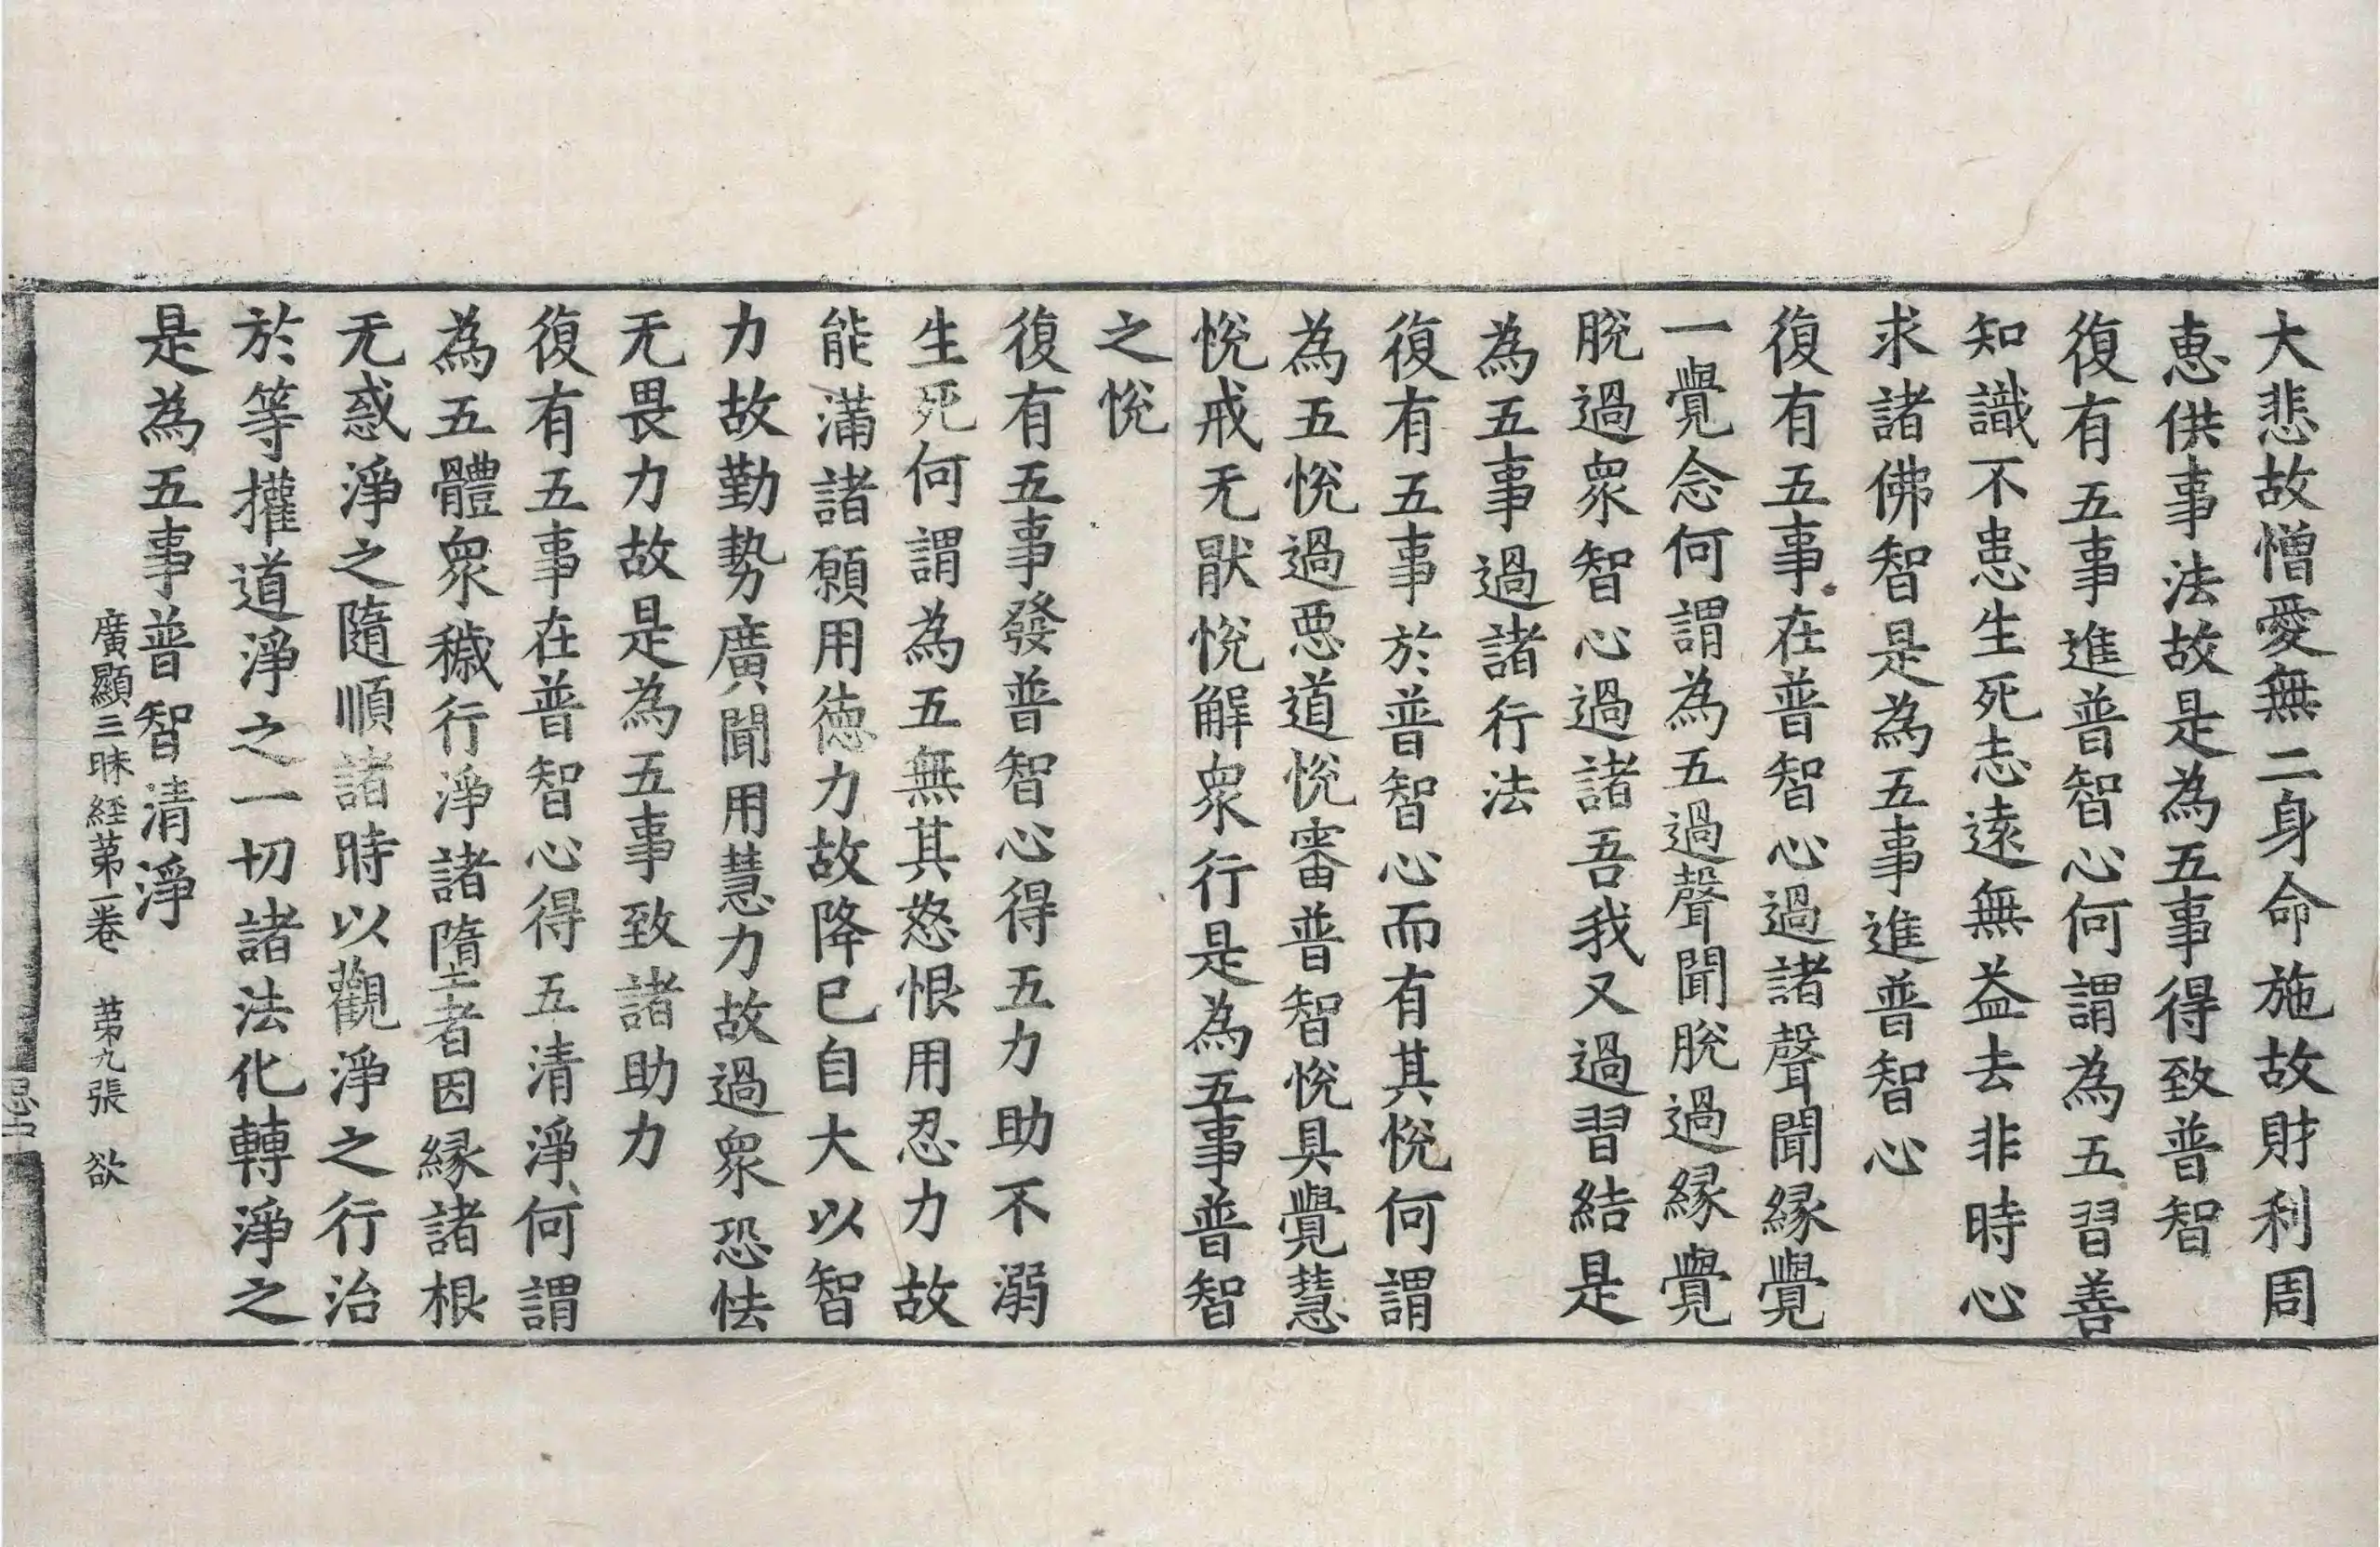 大悲故憎愛無二身命施故財利周
恵供事法故是為五事得致普智
復有五事進普智心何謂為五習善
知識不患生死志遠無益去非時心
求諸佛智是為五事進普智心
復有五事在普智心過諸聲聞縁覺
一覺念何謂為五過聲聞脫過縁覺
脫過衆智心過諸吾我又過習結是
為五事過諸行法
復有五事於普智心而有其悅何謂
為五悅過惡道悅審普智悅具覺慧
悅戒无猒悅解衆行是為五事普智
之悅
復有五事發普智心得五力助不溺
生死何謂為五無其怒恨用忍力故
能滿諸願用德力故降已自大以智
力故勤勢廣聞用慧力故過衆恐怯
无畏力故是為五事致諸助力
復有五事在普智心得五清淨何謂
為五體衆穢行淨諸墮者因縁諸根
无惑淨之隨順諸時以觀淨之行治
於等攉道淨之一切諸法化轉淨之
是為五事普智清淨
廣顯三昧經苐一卷 苐九張 欲